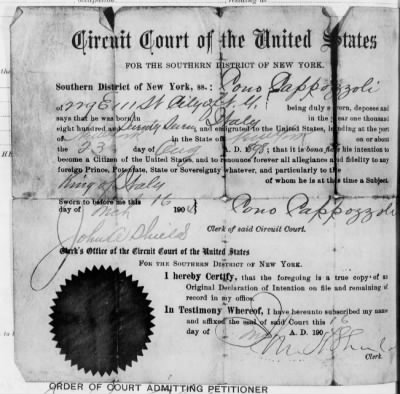 Circuit Court of the United States
FOR THE SOUTHERN DISTRICT OF NEW YORK.
Southern District of New York, ss.: Cono Cappozzoli
of 229 E 111 St City of N.Y. being duly sworn, deposes and
says that he was born in Italy in the year one thousand
eight hundred and and emigrated to the United States, landing at the port
of in the State of on or about
the 23 day of Aug A. D. 1898; that it is bona fide his intention to
become a Citizen of the United States, and to renounce forever all allegiance and fidelity to any
foreign Prince, Potentate, State or Sovereignty whatever, and particularly to the
King of Italy of whom he is at this time a Subject.
Sworn to before me this 16
day of Mch 190 Cono Cappozzoli
John A Shields Clerk of said Circuit Court.
Clerk's Office of the Circuit Court of the United States
FOR THE SOUTHERN DISTRICT OF NEW YORK.
I hereby Certify, that the foregoing is a true copy of
Original Declaration of Intention on file and remaining of
record in my office.
In Testimony Whereof, I have hereunto subscribed my name
and affixed the seal of said Court this 16
day of Mch A. D. 190
Clerk.
ORDER OF COURT ADMITTING PETITIONER